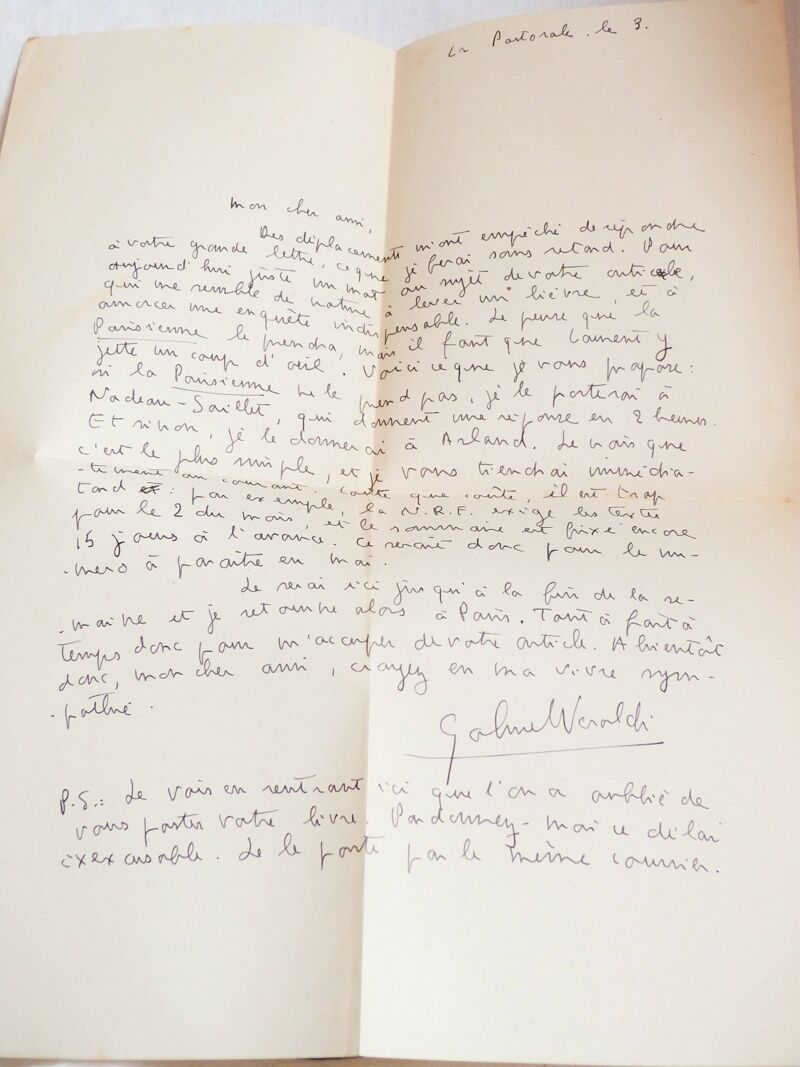 La Pastorale. le 3.
Mon cher ami,
Des déplacements m'ont empêché de répondre
à votre grande lettre, ce que je ferai sans retard. Pour
aujourd'hui juste un mot au sujet de votre article,
qui me semble de nature à lever un lièvre, et à
amorcer une enquête indispensable. Je pense que la
Parisienne le prendra, mais il faut que Laurent y
jette un coup d'œil. Voici ce que je vous propose :
si la Parisienne ne le prend pas, je le porterai à
Nadeau-Saillet, qui donnent une réponse en 2 heures.
Et sinon, je le donnerai à Arland. Je crois que
c'est le plus simple, et je vous tiendrai immédia-
-tement au courant. Coûte que coûte, il est trop
tard : par exemple, la N.R.F. exige les textes
pour le 2 du mois, et le sommaire est fixé encore
15 jours à l'avance. Ce serait donc pour le nu-
-méro à paraître en mai.
Je serai ici jusqu'à la fin de la se-
-maine et je retourne alors à Paris. Tout à fait à
temps donc pour m'occuper de votre article. A bientôt
donc, mon cher ami, croyez en ma vive sym-
-pathie.
Gabriel Veraldi
P.S.: Je vois en rentrant ici que l'on a oublié de
vous poster votre livre. Pardonnez-moi ce délai
inexcusable. Je le poste par le même courrier.